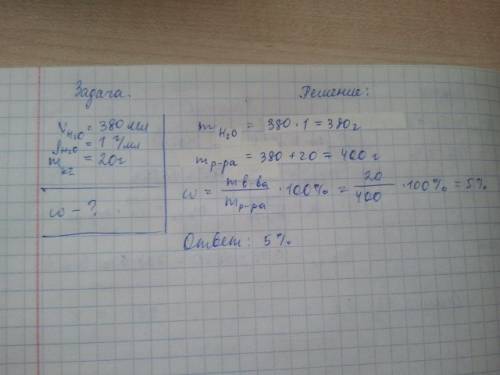 Задача.
V H₂O = 380 мл
ρ H₂O = 1 г/мл
m кг = 20г
ω - ?
Решение:
m H₂O = 380 · 1 = 380г
m р-ра = 380 + 20 = 400 г
ω = m в-ва / m р-ра · 100% = 20 / 400 · 100% = 5%
Ответ: 5%